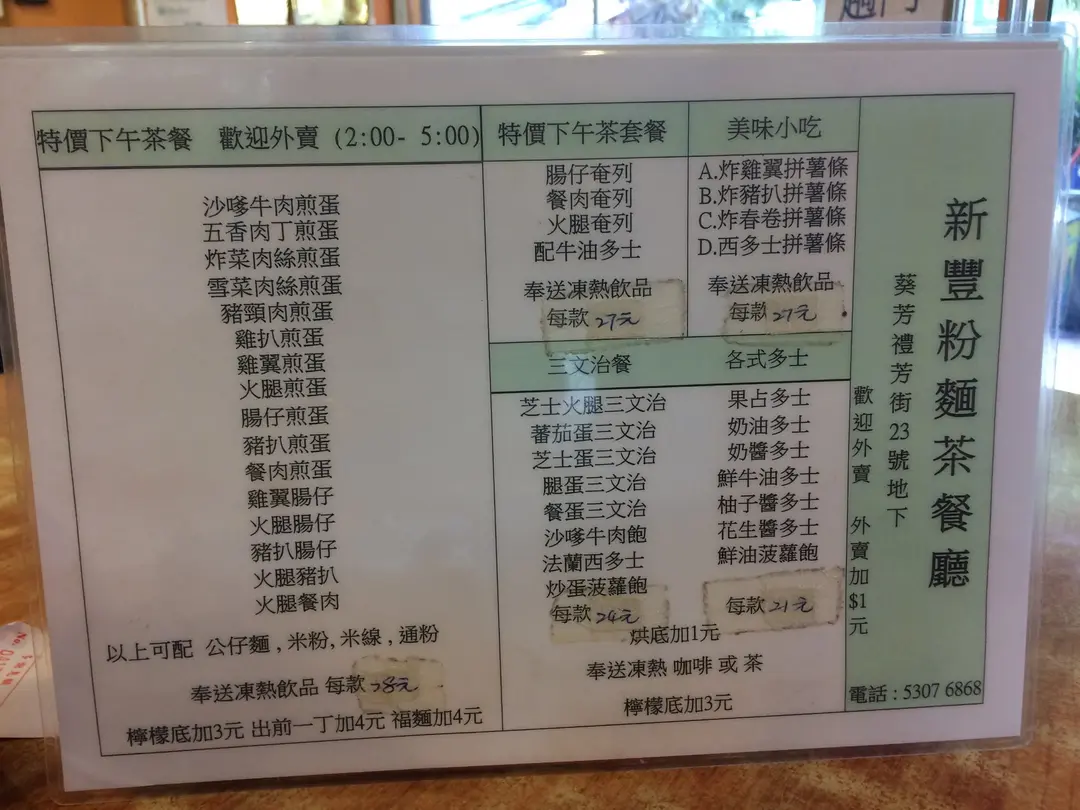 特價下午茶餐 歡迎外賣 (2:00- 5:00)
沙嗲牛肉煎蛋
五香肉丁煎蛋
炸菜肉絲煎蛋
雪菜肉絲煎蛋
豬頸肉煎蛋
雞扒煎蛋
雞翼煎蛋
火腿煎蛋
腸仔煎蛋
豬扒煎蛋
餐肉煎蛋
雞翼腸仔
火腿腸仔
豬扒腸仔
火腿豬扒
火腿餐肉
以上可配 公仔麵 , 米粉, 米線 , 通粉
奉送凍熱飲品 每款 28元
檸檬底加3元 出前一丁加4元 福麵加4元
特價下午茶套餐
腸仔奄列
餐肉奄列
火腿奄列
配牛油多士
奉送凍熱飲品
每款 27元
美味小吃
A.炸雞翼拼薯條
B.炸豬扒拼薯條
C.炸春卷拼薯條
D.西多士拼薯條
奉送凍熱飲品
每款 27元
三文治餐
芝士火腿三文治
蕃茄蛋三文治
芝士蛋三文治
腿蛋三文治
餐蛋三文治
沙嗲牛肉飽
法蘭西多士
炒蛋菠蘿飽
每款 24元
各式多士
果占多士
奶油多士
奶醬多士
鮮牛油多士
柚子醬多士
花生醬多士
鮮油菠蘿飽
每款 21元
烘底加1元
奉送凍熱 咖啡 或 茶
檸檬底加3元
新豐粉麵茶餐廳
葵芳禮芳街23號地下
歡迎外賣 外賣加$1元
電話 : 5307 6868